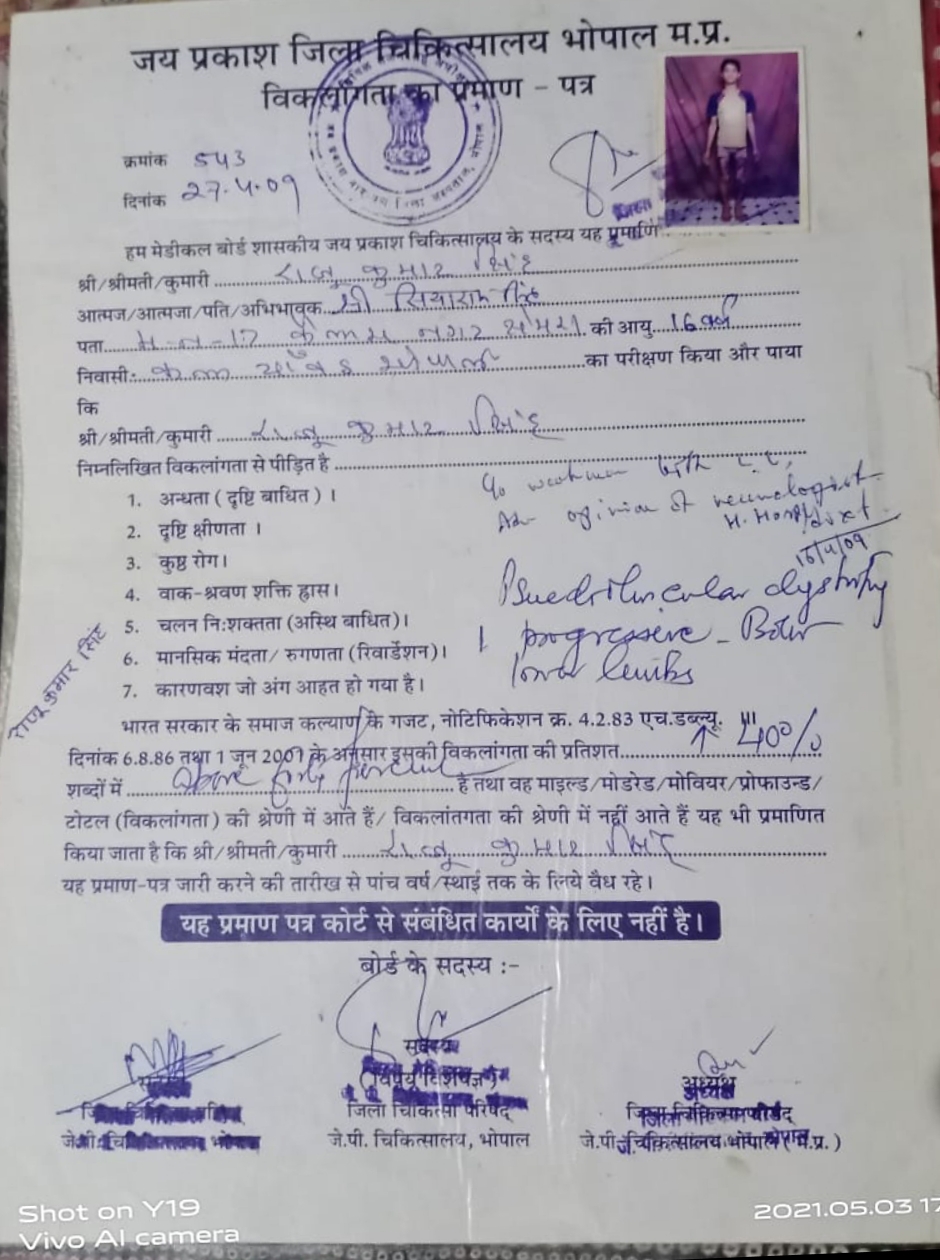 जय प्रकाश जिला चिकित्सालय भोपाल म.प्र.
विकलांगता का प्रमाण - पत्र
क्रमांक 543
दिनांक 27.4.09
हम मेडीकल बोर्ड शासकीय जय प्रकाश चिकित्सालय के सदस्य यह प्रमाणि
श्री/श्रीमती/कुमारी राजु कुमार सिंह
आत्मज/आत्मजा/पति/अभिभावक श्री सियाराम सिंह
पता म-न-17 नगर की आयु 16 वर्ष
निवासी:- का परीक्षण किया और पाया
कि
श्री/श्रीमती/कुमारी राजू कुमार सिंह
निम्नलिखित विकलांगता से पीड़ित है
1. अन्धता ( दृष्टि बाधित ) ।
2. दृष्टि क्षीणता ।
3. कुष्ठ रोग।
4. वाक-श्रवण शक्ति ह्रास।
5. चलन नि:शक्तता (अस्थि बाधित)।
6. मानसिक मंदता/ रुगणता (रिवार्डेशन)।
7. कारणवश जो अंग आहत हो गया है।
opinion of neurologist
15/4/09
dystrophy
progressive - Both
lower limbs
राजू कुमार सिंह
भारत सरकार के समाज कल्याण के गजट, नोटिफिकेशन क्र. 4.2.83 एच.डब्ल्यू. III
दिनांक 6.8.86 तथा 1 जून 2001 के अनुसार इसकी विकलांगता की प्रतिशत ↑ 40%
शब्दों में Above forty percent है तथा वह माइल्ड/मोडरेड/मोवियर/प्रोफाउन्ड/
टोटल (विकलांगता) की श्रेणी में आते हैं/ विकलांतगता की श्रेणी में नहीं आते हैं यह भी प्रमाणित
किया जाता है कि श्री/श्रीमती/कुमारी राजू कुमार सिंह
यह प्रमाण-पत्र जारी करने की तारीख से पांच वर्ष/स्थाई तक के लिये वैध रहे।
यह प्रमाण पत्र कोर्ट से संबंधित कार्यों के लिए नहीं है।
बोर्ड के सदस्य :-
सदस्य
सदस्य
(विषय विशेषज्ञ)
जिला चिकित्सा परिषद्
जे.पी. चिकित्सालय, भोपाल
अध्यक्ष
जे.पी. चिकित्सालय भोपाल (म.प्र.)
Shot on Y19
Vivo AI camera
2021.05.03 17